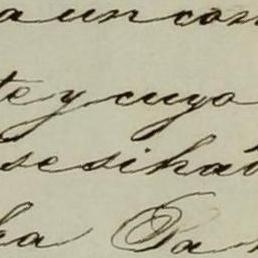 a un con
te y cuyo
se si ha
ha Pa